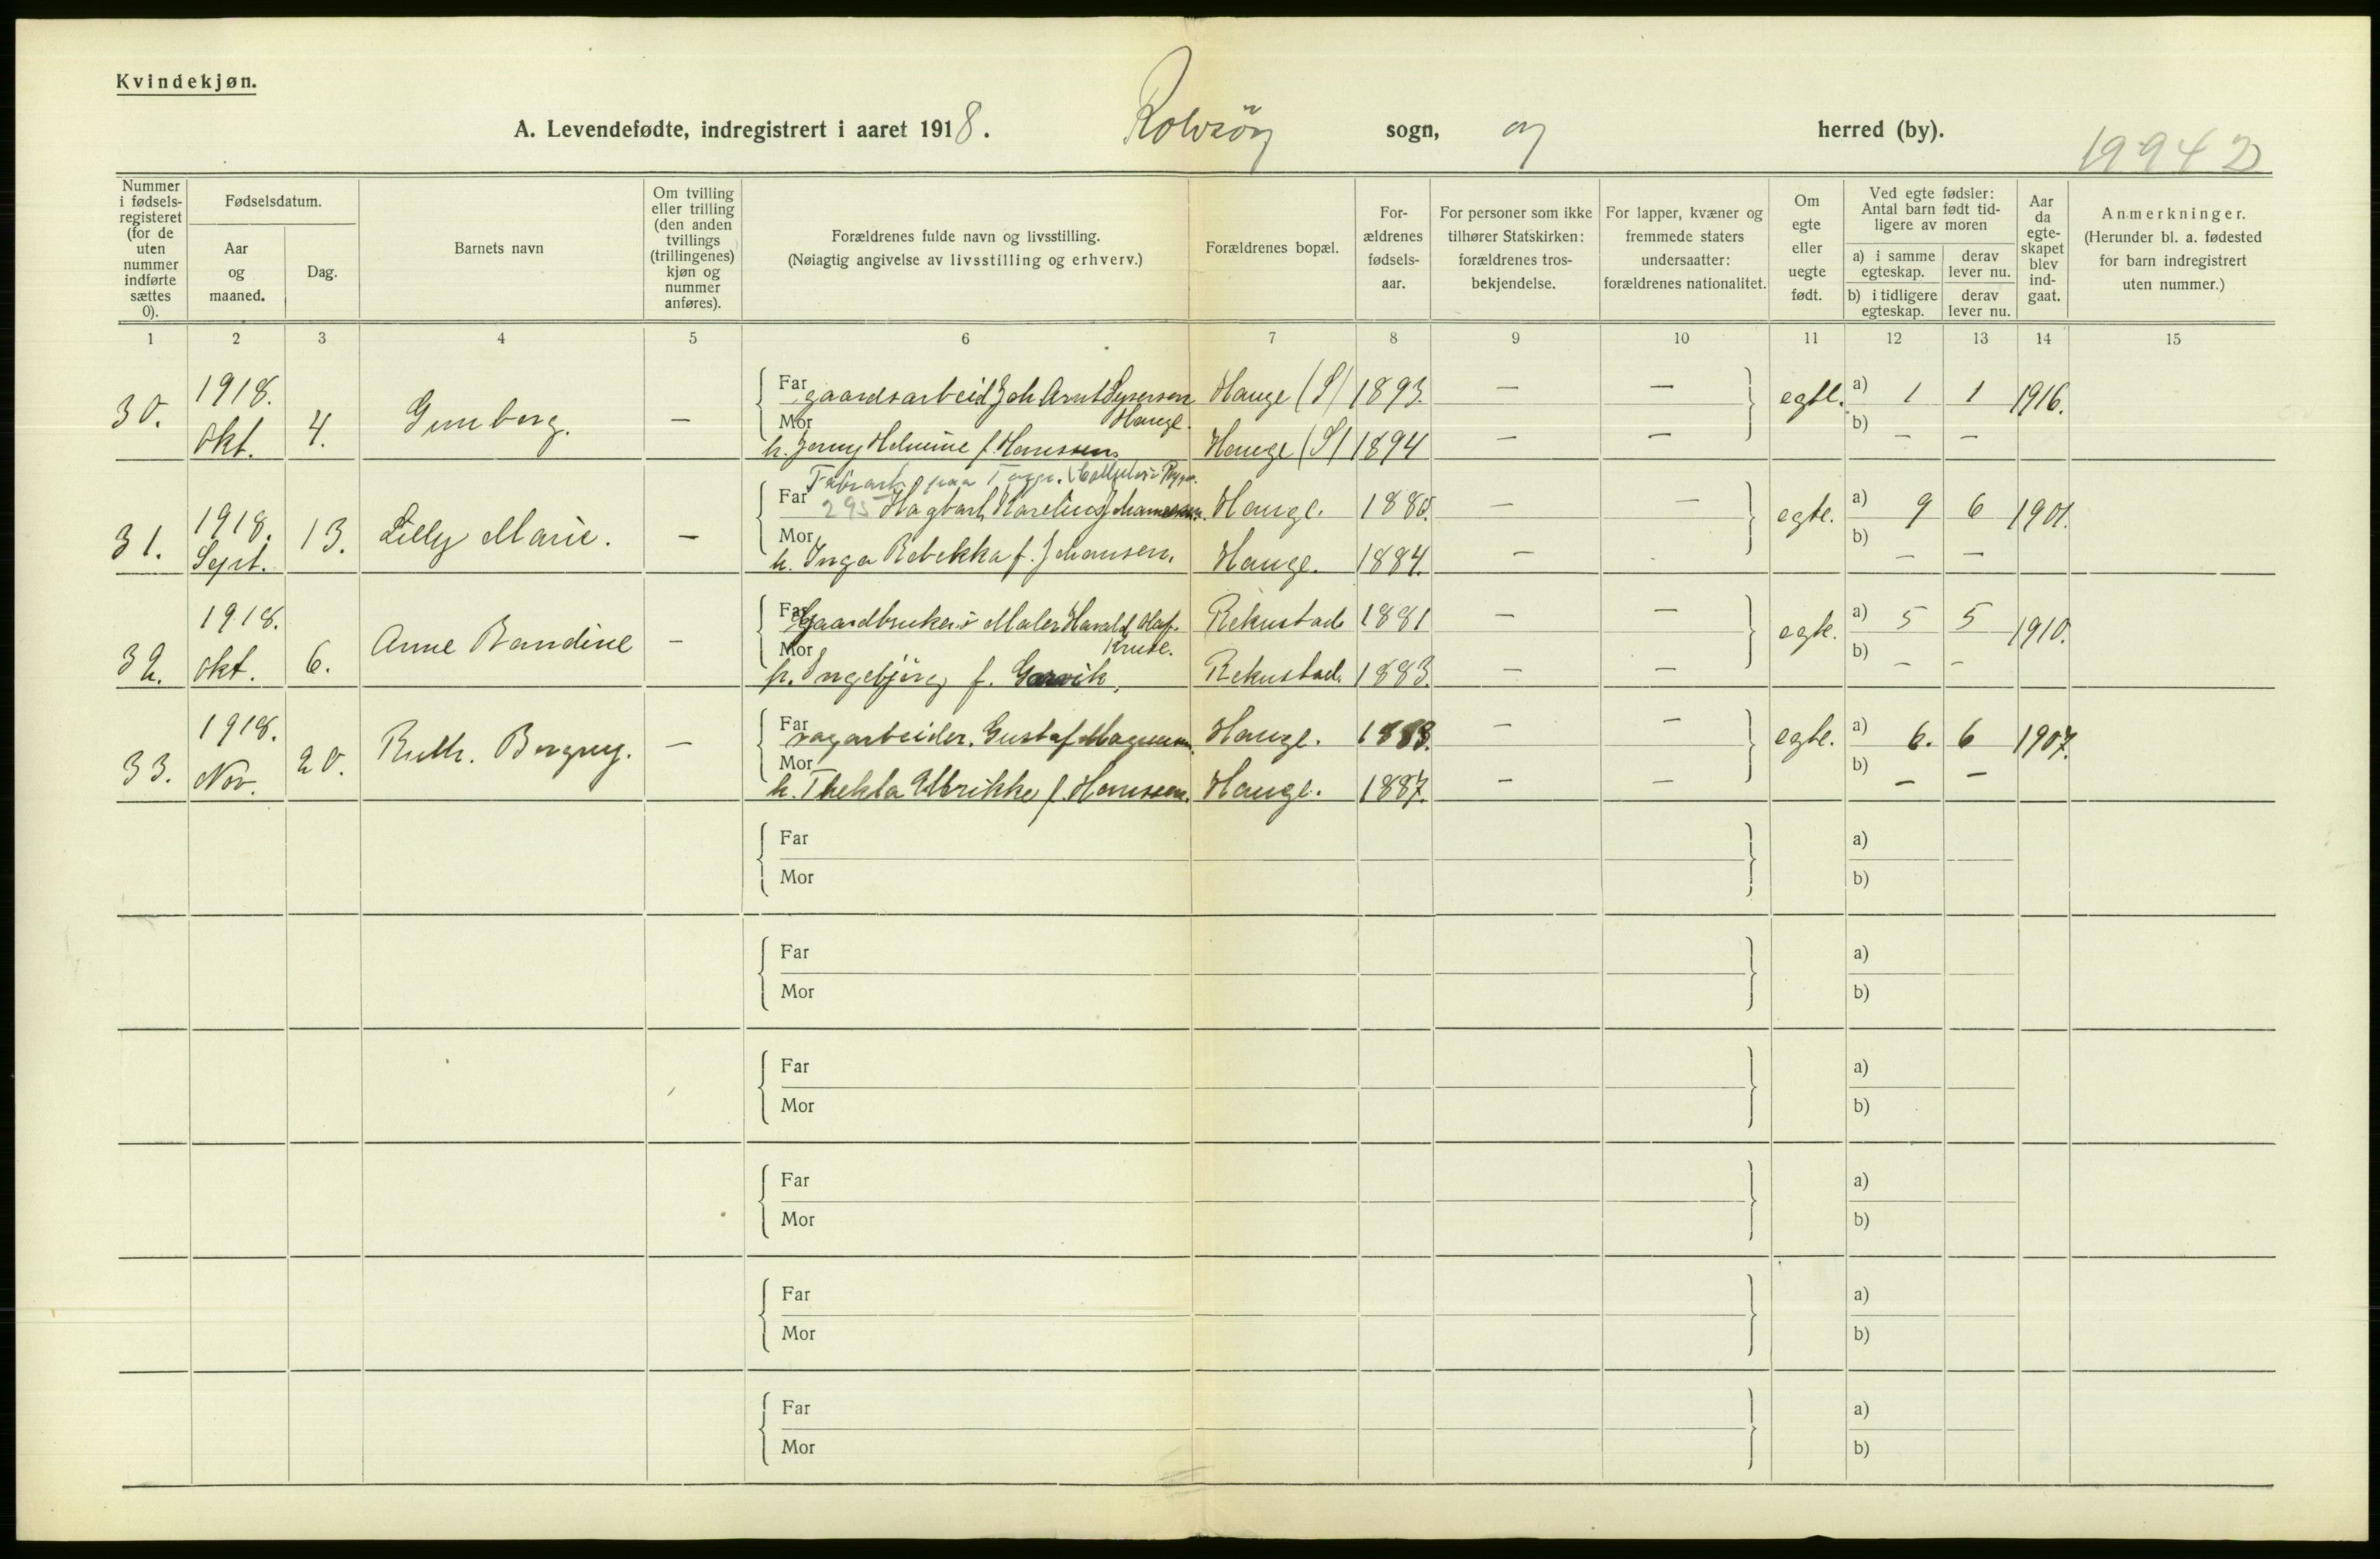 Kvindekjøn.
A. Levendefødte, indregistrert i aaret 1918. Rolvsøy sogn, og herred (by).
19942
Nummer i fødselsregisteret (for de uten nummer indførte sættes 0).
Fødselsdatum.
Aar og maaned.
Dag.
Barnets navn
Om tvilling eller trilling (den anden tvillings (trillingenes) kjøn og nummer anføres).
Forældrenes fulde navn og livsstilling.
(Nøiagtig angivelse av livsstilling og erhverv.)
Forældrenes bopæl.
For-ældrenes fødsels-aar.
For personer som ikke tilhører Statskirken: forældrenes tros-bekjendelse.
For lapper, kvæner og fremmede staters undersaatter: forældrenes nationalitet.
Om egte eller uegte født.
Ved egte fødsler: Antal barn født tid-ligere av moren
a) i samme egteskap.
derav lever nu.
b) i tidligere egteskap.
derav lever nu.
Aar da egte-skapet blev ind-gaat.
Anmerkninger.
(Herunder bl. a. fødested for barn indregistrert uten nummer.)
1 2 3 4 5 6 7 8 9 10 11 12 13 14 15
30. 1918. Okt. 4. Gunborg. —
Far gaardsarbeid Joh Arnt Syversen Hauge. Hauge (S) 1893. — — egte. a) 1 1 1916.
Mor h. Jenny Helmine f. Hanssen Hauge (S) 1894 — — b) — —
31. 1918. Sept. 13. Lilly Marie. —
Far 295 Hagbart Karelius Johannessen. Hauge. 1880. — — egte. a) 9 6 1901.
Mor h. Inga Rebekka f. Johansen. Hauge. 1884. — b) — —
32. 1918. Okt. 6. Anne Bandine —
Far Gaardbruker & Maler Harald Olaf Kruse. Rekustad 1881 — — egte. a) 5 5 1910.
Mor h. Ingebjørg f. Garvik, Rekustad. 1883. — — b) — —
33. 1918. Nov. 20. Ruth. Borgny. —
Far sagarbeider. Gustaf Magnussen. Hauge. 1883. — — egte. a) 6. 6 1907.
Mor h. Thekla Ulrikke f. Hanssen. Hauge. 1887. — — b) — —
Far a)
Mor b)
Far a)
Mor b)
Far a)
Mor b)
Far a)
Mor b)
Far a)
Mor b)
Far a)
Mor b)